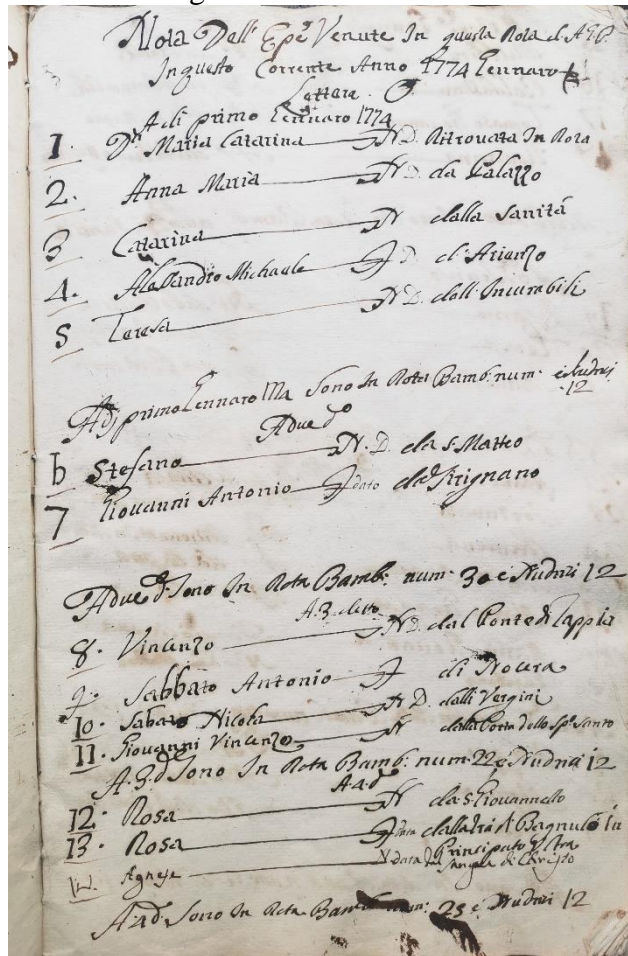 Nota Dell' Espᵗⁱ Venute In questa Rota d. A.G.P.
In questo Corrente Anno 1774 Gennaro
Lettera
A di primo Gennaro 1774
1. Dᵃ Maria Catarina N D. Ritrovata In Rota
2. Anna Maria N D. da Palazzo
3 Catarina N dalla Sanità
4. Alessandro Michaele D. d'Arienzo
5 Teresa N D. dall'Incurabili
Adj primo Gennaro 1774 Sono In Rota Bamb: num: e Nudrici 12
A due dᵒ
6 Stefano N. D. da S. Matteo
7 Giovanni Antonio dato
A due dᵒ Sono In Rota Bamb: num: 30 e Nudrici 12
A. 3 detto
8. Vincenzo N D. dal Ponte di Tappia
9. Sabbato Antonio di Nocera
10. Sabato Nicola N D. dalli Vergini
11. Giovanni Vincenzo N dalla Porta dello Spᵒ Santo
A. 3. d Sono In Rota Bamb: num: 22 e Nudrici 12
A 4 d
12. Rosa N da S. Giovannello
13. Rosa data dalla di Bagnulo in
Principato Ultra
14. Agnese N data Sangue di Christo
A. 4 d. Sono In Rota Bamb num: 25 e Nudrici 12